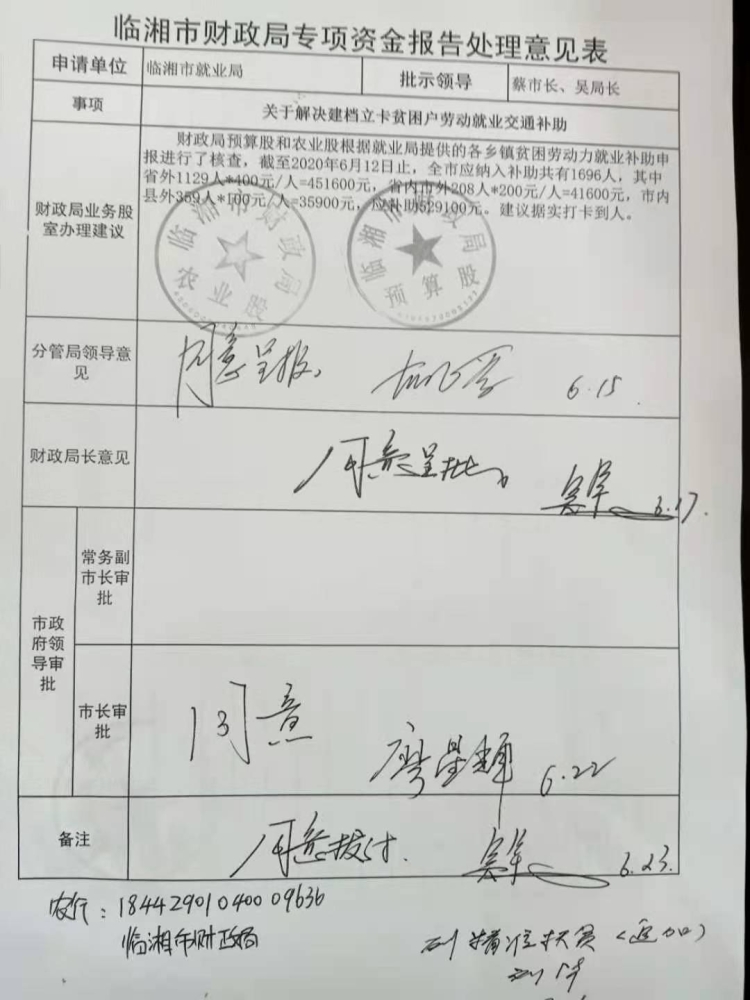 临湘市财政局专项资金报告处理意见表
申请单位 临湘市就业局 批示领导 蔡市长、吴局长
事项 关于解决建档立卡贫困户劳动就业交通补助
财政局业务股室办理建议
财政局预算股和农业股根据就业局提供的各乡镇贫困劳动力就业补助申
报进行了核查，截至2020年6月12日止，全市应纳入补助共有1696人，其中
省外1129人*400元/人=451600元，省内市外208人*200元/人=41600元，市内
县外359人*100元/人=35900元，应补助529100元。建议据实打卡到人。
临湘市财政局
农业股
临湘市财政局
预算股
分管局领导意见
同意呈报。 6.15
财政局长意见
同意呈批。 6.17.
市政府领导审批
常务副市长审批
市长审批
同意
廖星辉 6.22
备注
同意拨付. 6.23.
农行：18442901040009636
临湘市财政局
精准扶贫（追加）